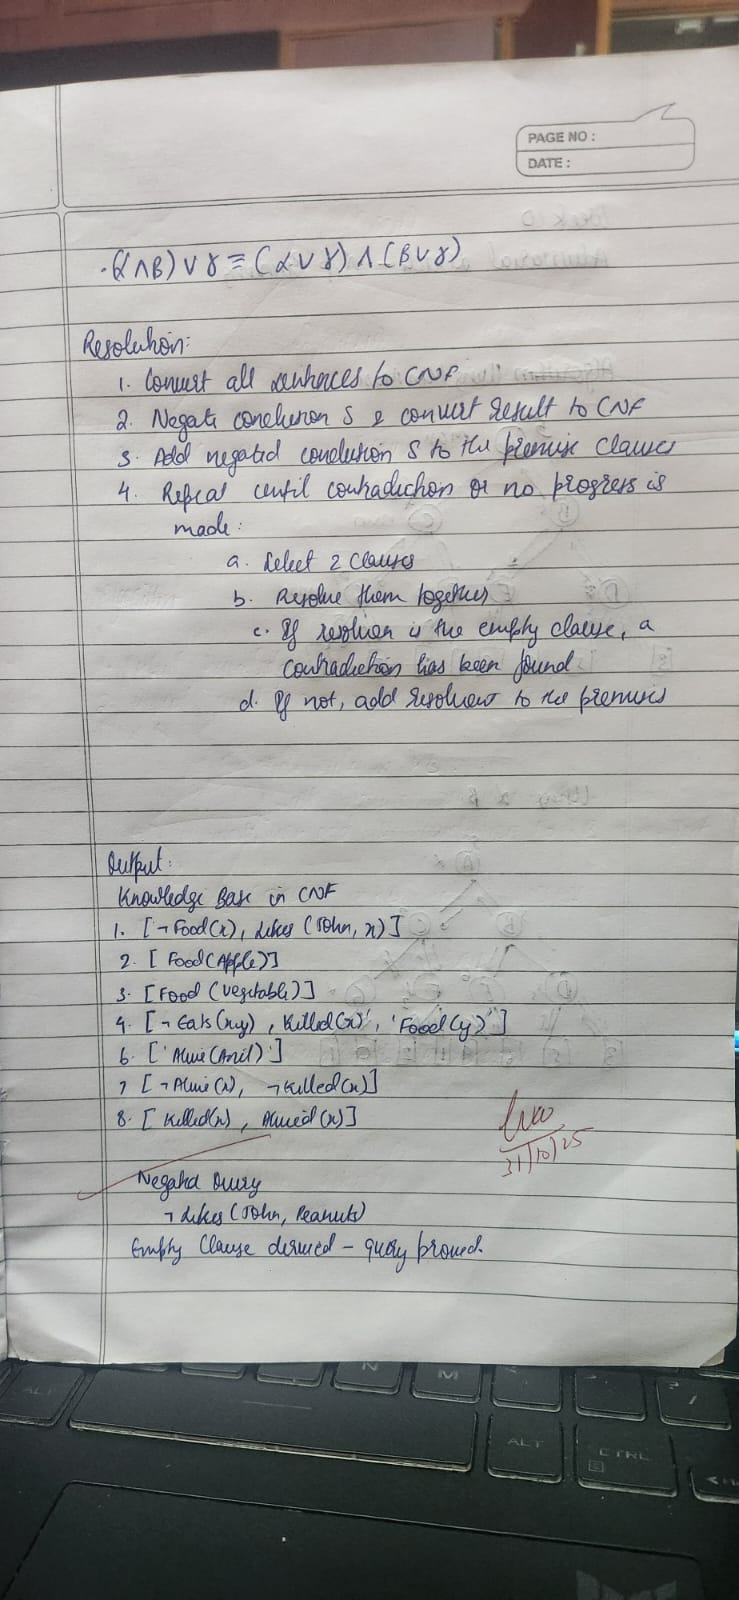 PAGE NO :
DATE :
.(α ∧ B) ∨ γ ≡ (α ∨ γ) ∧ (B ∨ γ)
Resolution:
1. Convert all sentences to CNF
2. Negate conclusion S & convert result to CNF
3. Add negated conclusion S to the premise clauses
4. Repeat until contradiction or no progress is
made:
a. Select 2 clauses
b. Resolve them together
c. If resolven is the empty clause, a
contradiction has been found
d. If not, add resolvent to the premises
Output:
Knowledge Base in CNF
1. [¬Food(x), Likes (John, x)]
2. [Food(Apple)]
3. [Food (vegetable)]
4. [¬Eats(x,y), Killed(x)', 'Food(y)']
6. ['Alive(Anil)']
7 [¬Alive(x), ¬Killed(x)]
8. [Killed(x), Alived(x)]
Negated Query
¬Likes (John, Peanuts)
Empty Clause derived - query proved.
31/10/25
ALT
N
M
ALT
CTRL